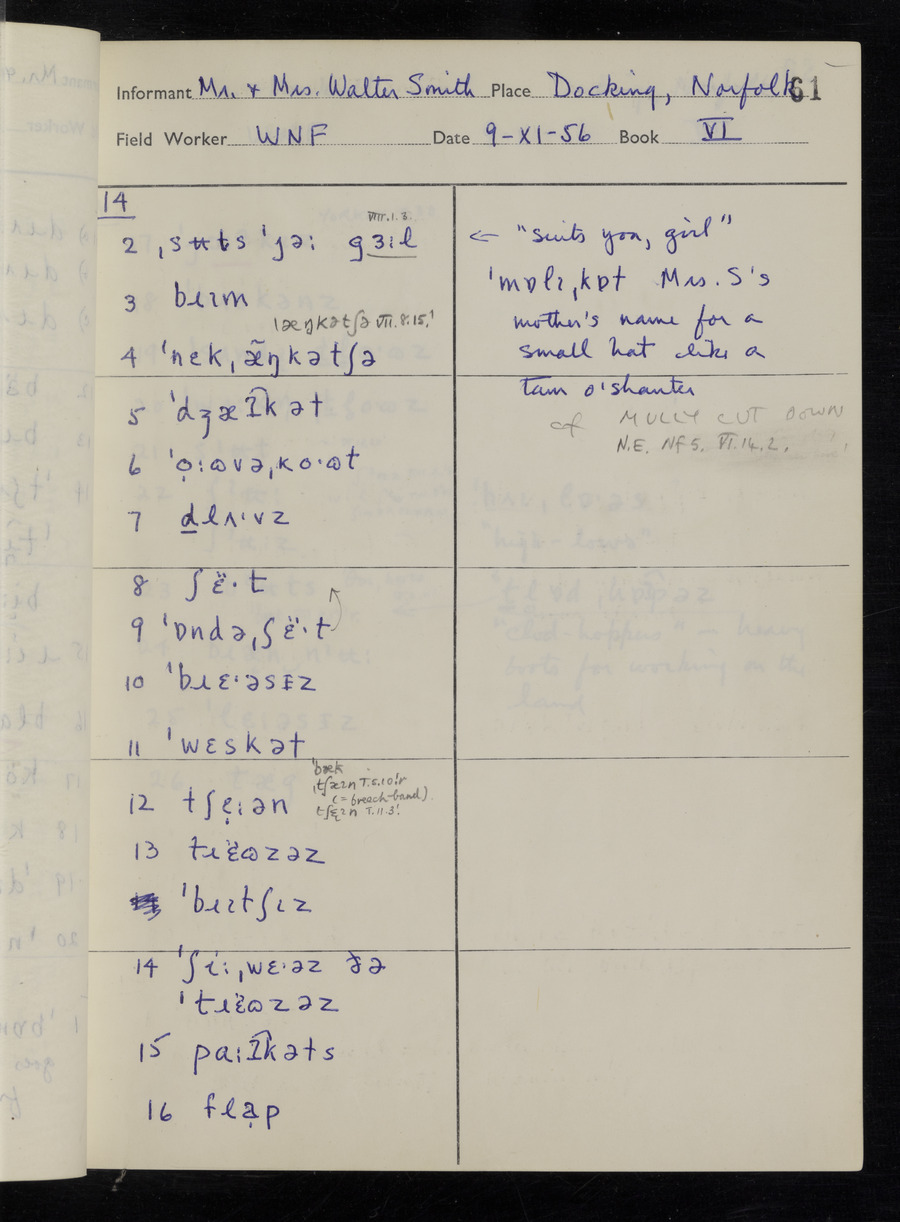 Informant Mr. & Mrs. Walter Smith Place Docking, Norfolk 61
Field Worker WNF Date 9-XI-56 Book VI
14
VIII.1.3.
2 ˌsʉts ˈjəː gɜːl
3 bɪɪm
ˈæŋkətʃə VII.8.15.ˈ
4 ˈnɛkˌæ̃ŋkətʃə
5 ˈdʒæʔ͡kət
6 ˈọːɷvəˌkoˑɷt
7 d̲lʌˑvz
8 ʃɛ̈ˑt
9 ˈɒndəˌʃɛ̈ˑt
10 ˈbɪɛˑəsɪz
11 ˈwɛskət
ˈbæk
ˌtʃæɪn T.5.10ˈr
(= breech-band).
tʃɛ̣ɪn T.11.3ˈ.
12 tʃɛ̣ːən
13 tɹɛ̈ɷzəz
ˈbɹɪtʃɪz
14 ˈʃiːˌwɛˑəz ðə
ˈtɹɛ̈ɷzəz
15 paːʔ͡kəts
16 flạp
← "suits you, girl"
ˈmɒlɪˌkɒt Mrs. S's
mother's name for a
small hat like a
tam o'shanter
cf MULLY CUT DOWN
N.E. Nf 5. VI.14.2.